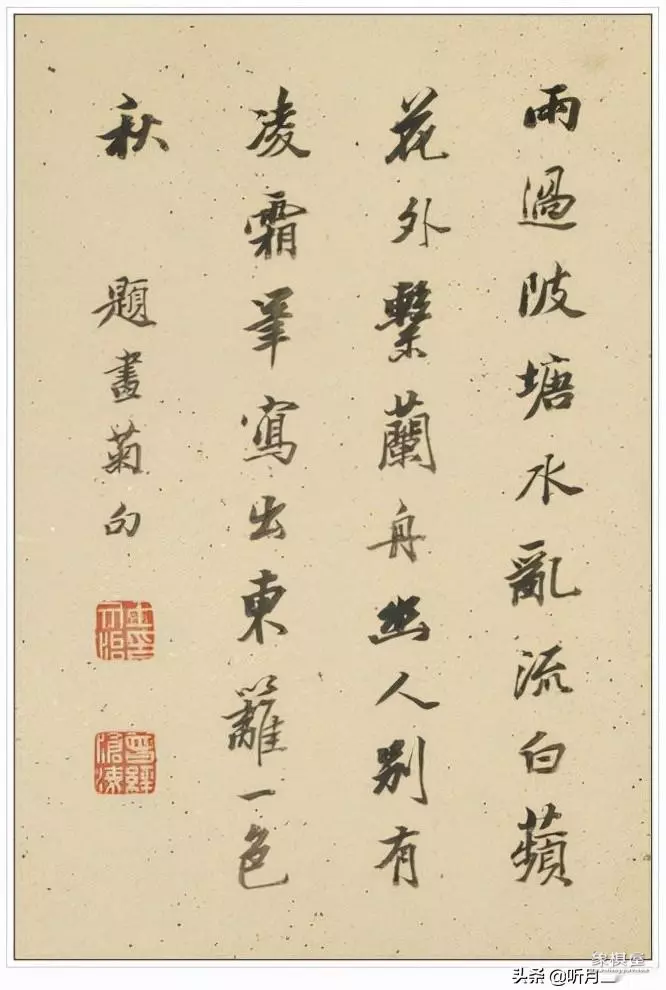 雨過陂塘水亂流白蘋
花外繫蘭舟幽人別有
凌霜筆寫出東籬一色
秋
題畫菊句
头条 @听月_